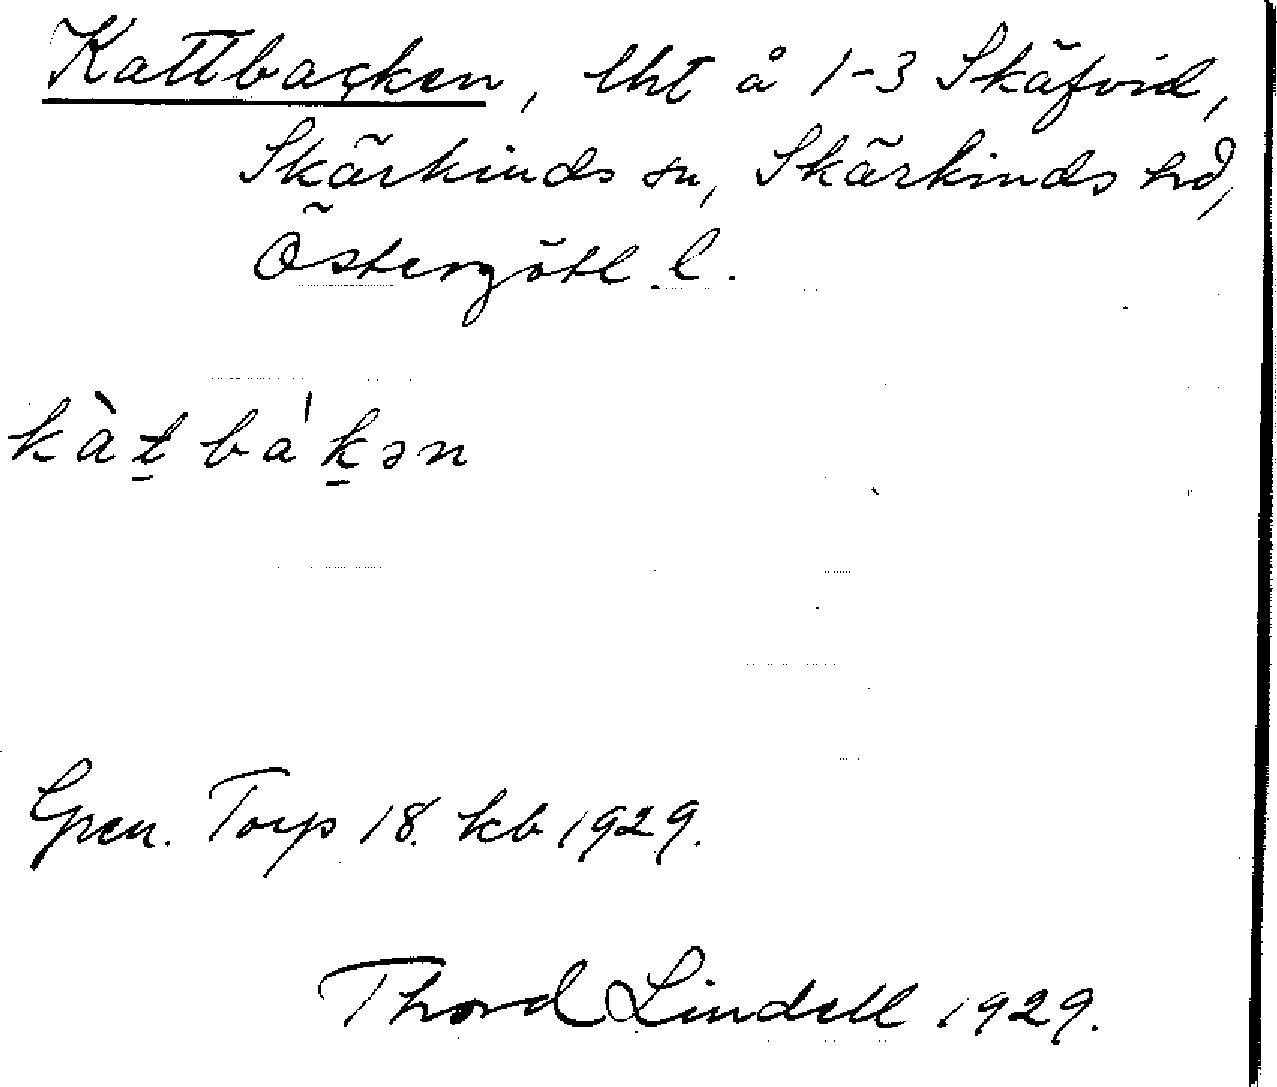 Kattbacken, lht å 1-3 Skäfvid,
Skärkinds sn, Skärkinds hd,
Östergötl. l.
kàt̠ bá k̠ən
Torp 18. kb 1929.
Thord Lindell 1929.